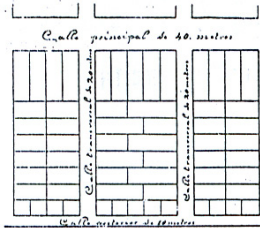 Calle principal de 40 metros
Calle transversal de 20 metros
Calle transversal de 20 metros
Calle de 10 metros